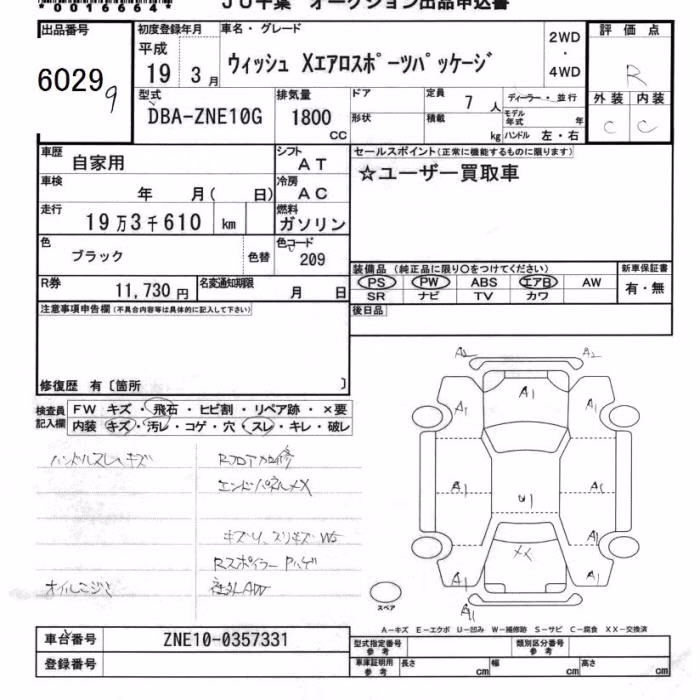 *00166644*
JU千葉 オークション出品申込書
出品番号
60299
初度登録年月
平成
19 3月
車名・グレード
ウィッシュ Xエアロスポーツパッケージ
2WD
・
4WD
評価点
R
外装 内装
C C
型式
DBA-ZNE10G
排気量
1800
CC
ドア
定員
7人
ディーラー・並行
形状
積載
kg
モデル年式
年
ハンドル 左・右
車歴
自家用
シフト
AT
車検
年 月( 日)
冷房
AC
走行
19万3千610 km
燃料
ガソリン
色
ブラック
色替
色コード
209
R券
11,730 円
名変通知期限
月 日
セールスポイント(正常に機能するものに限ります)
☆ユーザー買取車
装備品 (純正品に限り○をつけてください)
PS PW ABS エアB AW
SR ナビ TV カワ
新車保証書
有・無
後日品
注意事項申告欄(不具合内容等は具体的に記入して下さい)
修復歴 有〔箇所 〕
検査員
記入欄
FW キズ・飛石・ヒビ割・リペア跡・×要
内装 キズ・汚レ・コゲ・穴・スレ・キレ・破レ
ハンドルスレ、キズ
Rフロア 修
エンドパネルメX
キズリ、スリキズ W5
Rスポイラー Pハゲ
オイルニジミ
社外AW
A2 A2
A1
A1 A1
A1 U1 A1
A1
メX
A1 A1
A1
スペア
A-キズ E-エクボ U-凹み W-補修跡 S-サビ C-腐食 XX-交換済
車台番号
ZNE10-0357331
登録番号
型式指定番号
参考
類別区分番号
参考
車庫証明用
参考
長さ cm
幅 cm
高さ cm